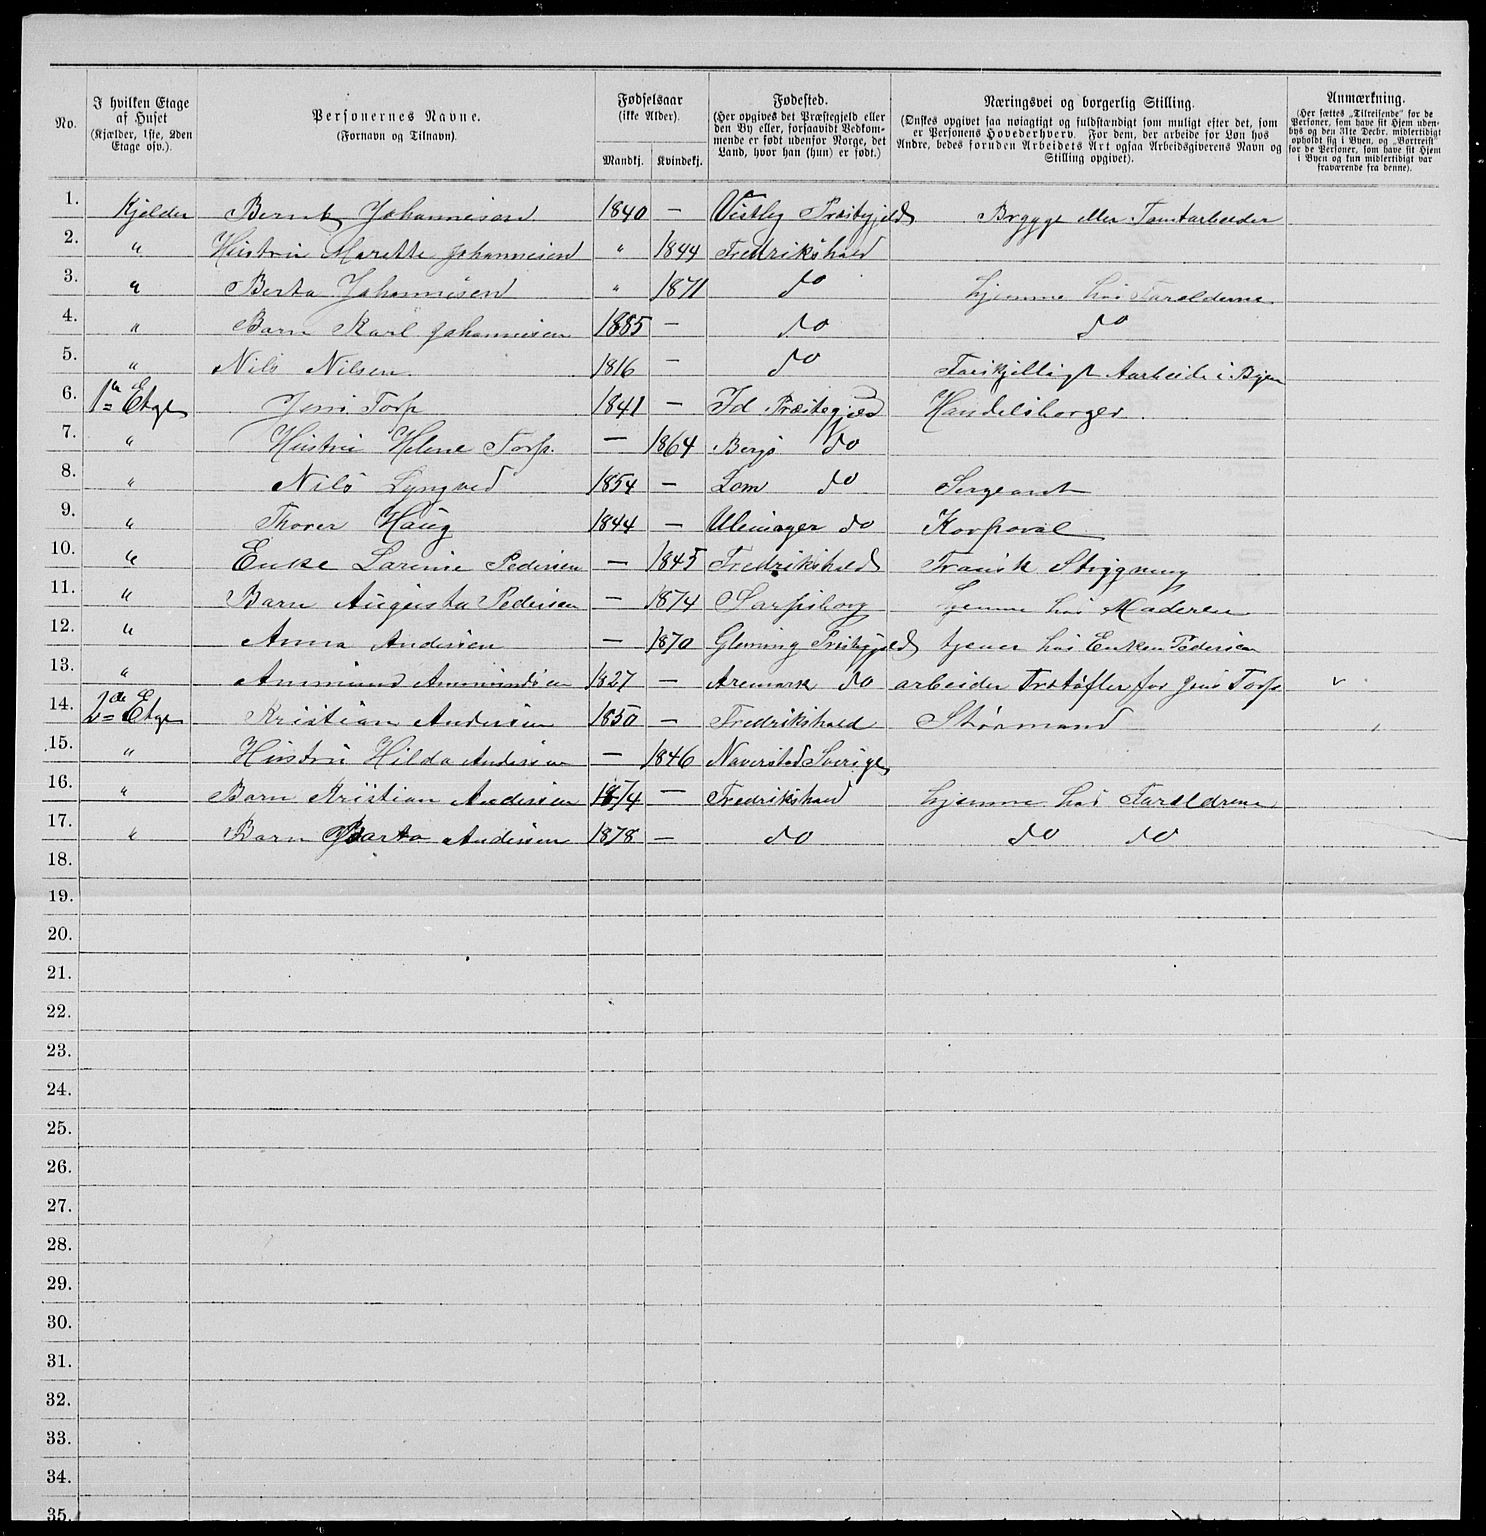 No. | I hvilken Etage af Huset (Kjælder, 1ste, 2den Etage osv.). | Personernes Navne. (Fornavn og Tilnavn). | Fødselsaar (ikke Alder). Mandkj. | Kvindekj. | Fødested. (Her opgives det Præstegjeld eller den By eller, forsaavidt Vedkommende er født udenfor Norge, det Land, hvor han (hun) er født.) | Næringsvei og borgerlig Stilling. (Ønskes opgivet saa nøiagtigt og fuldstændigt som muligt efter det, som er Personens Hovederhverv. For dem, der arbeide for Løn hos Andre, bedes foruden Arbeidets Art ogsaa Arbeidsgiverens Navn og Stilling opgivet). | Anmærkning. (Her sættes „Tilreisende“ for de Personer, som have sit Hjem udenbys og den 31te Decbr. midlertidigt opholdt sig i Byen, og „Bortreist“ for de Personer, som have sit Hjem i Byen og kun midlertidigt var fraværende fra denne).
1. Kjelder Bernt Johannesen 1840 — Vestby Præstegjeld Brygge eller Tomtarbeider
2. " Hustru Marette Johannesen " 1844 Fredrikshald
3. " Berta Johannesen " 1871 do hjemme hos Foreldrene
4. " Barn Karl Johannesen 1885 — do do
5. " Nils Nilsen 1816 — do Forskjelligt Aarbeide i Byen
6. 1ste Etge Jens Torp 1841 — Id Præstegjeld Handelsborger
7. " Hustru Helene Torp. — 1864 Berg do
8. " Nils Lyngved 1854 — Lom do Sergeant
9. " Thorer Haug 1844 — Ulensager do Korporal
10. " Enke Larine Pedersen — 1845 Fredrikshald
11. " Barn Augusta Pedersen — 1874 Sarpsborg hjemme hos Moderen
12. " Anna Andersen — 1870 Glemmig Prestegjeld tjener hos Enken Pedersen
13. " Ammund Ammundsen 1827 — Aremark do arbeider Trætøfler for Jens Torp
14. 2de Etge Kristian Andersen 1850 — Fredrikshald
15. " Hustru Hilda Andersen — 1846 Naverstad Sverige
16. " Barn Kristian Andersen 1874 — Fredrikshald hjemme hos Foreldrene
17. " Barn Andersen 1878 — do do do
18.
19.
20.
21.
22.
23.
24.
25.
26.
27.
28.
29.
30.
31.
32.
33.
34.
35.